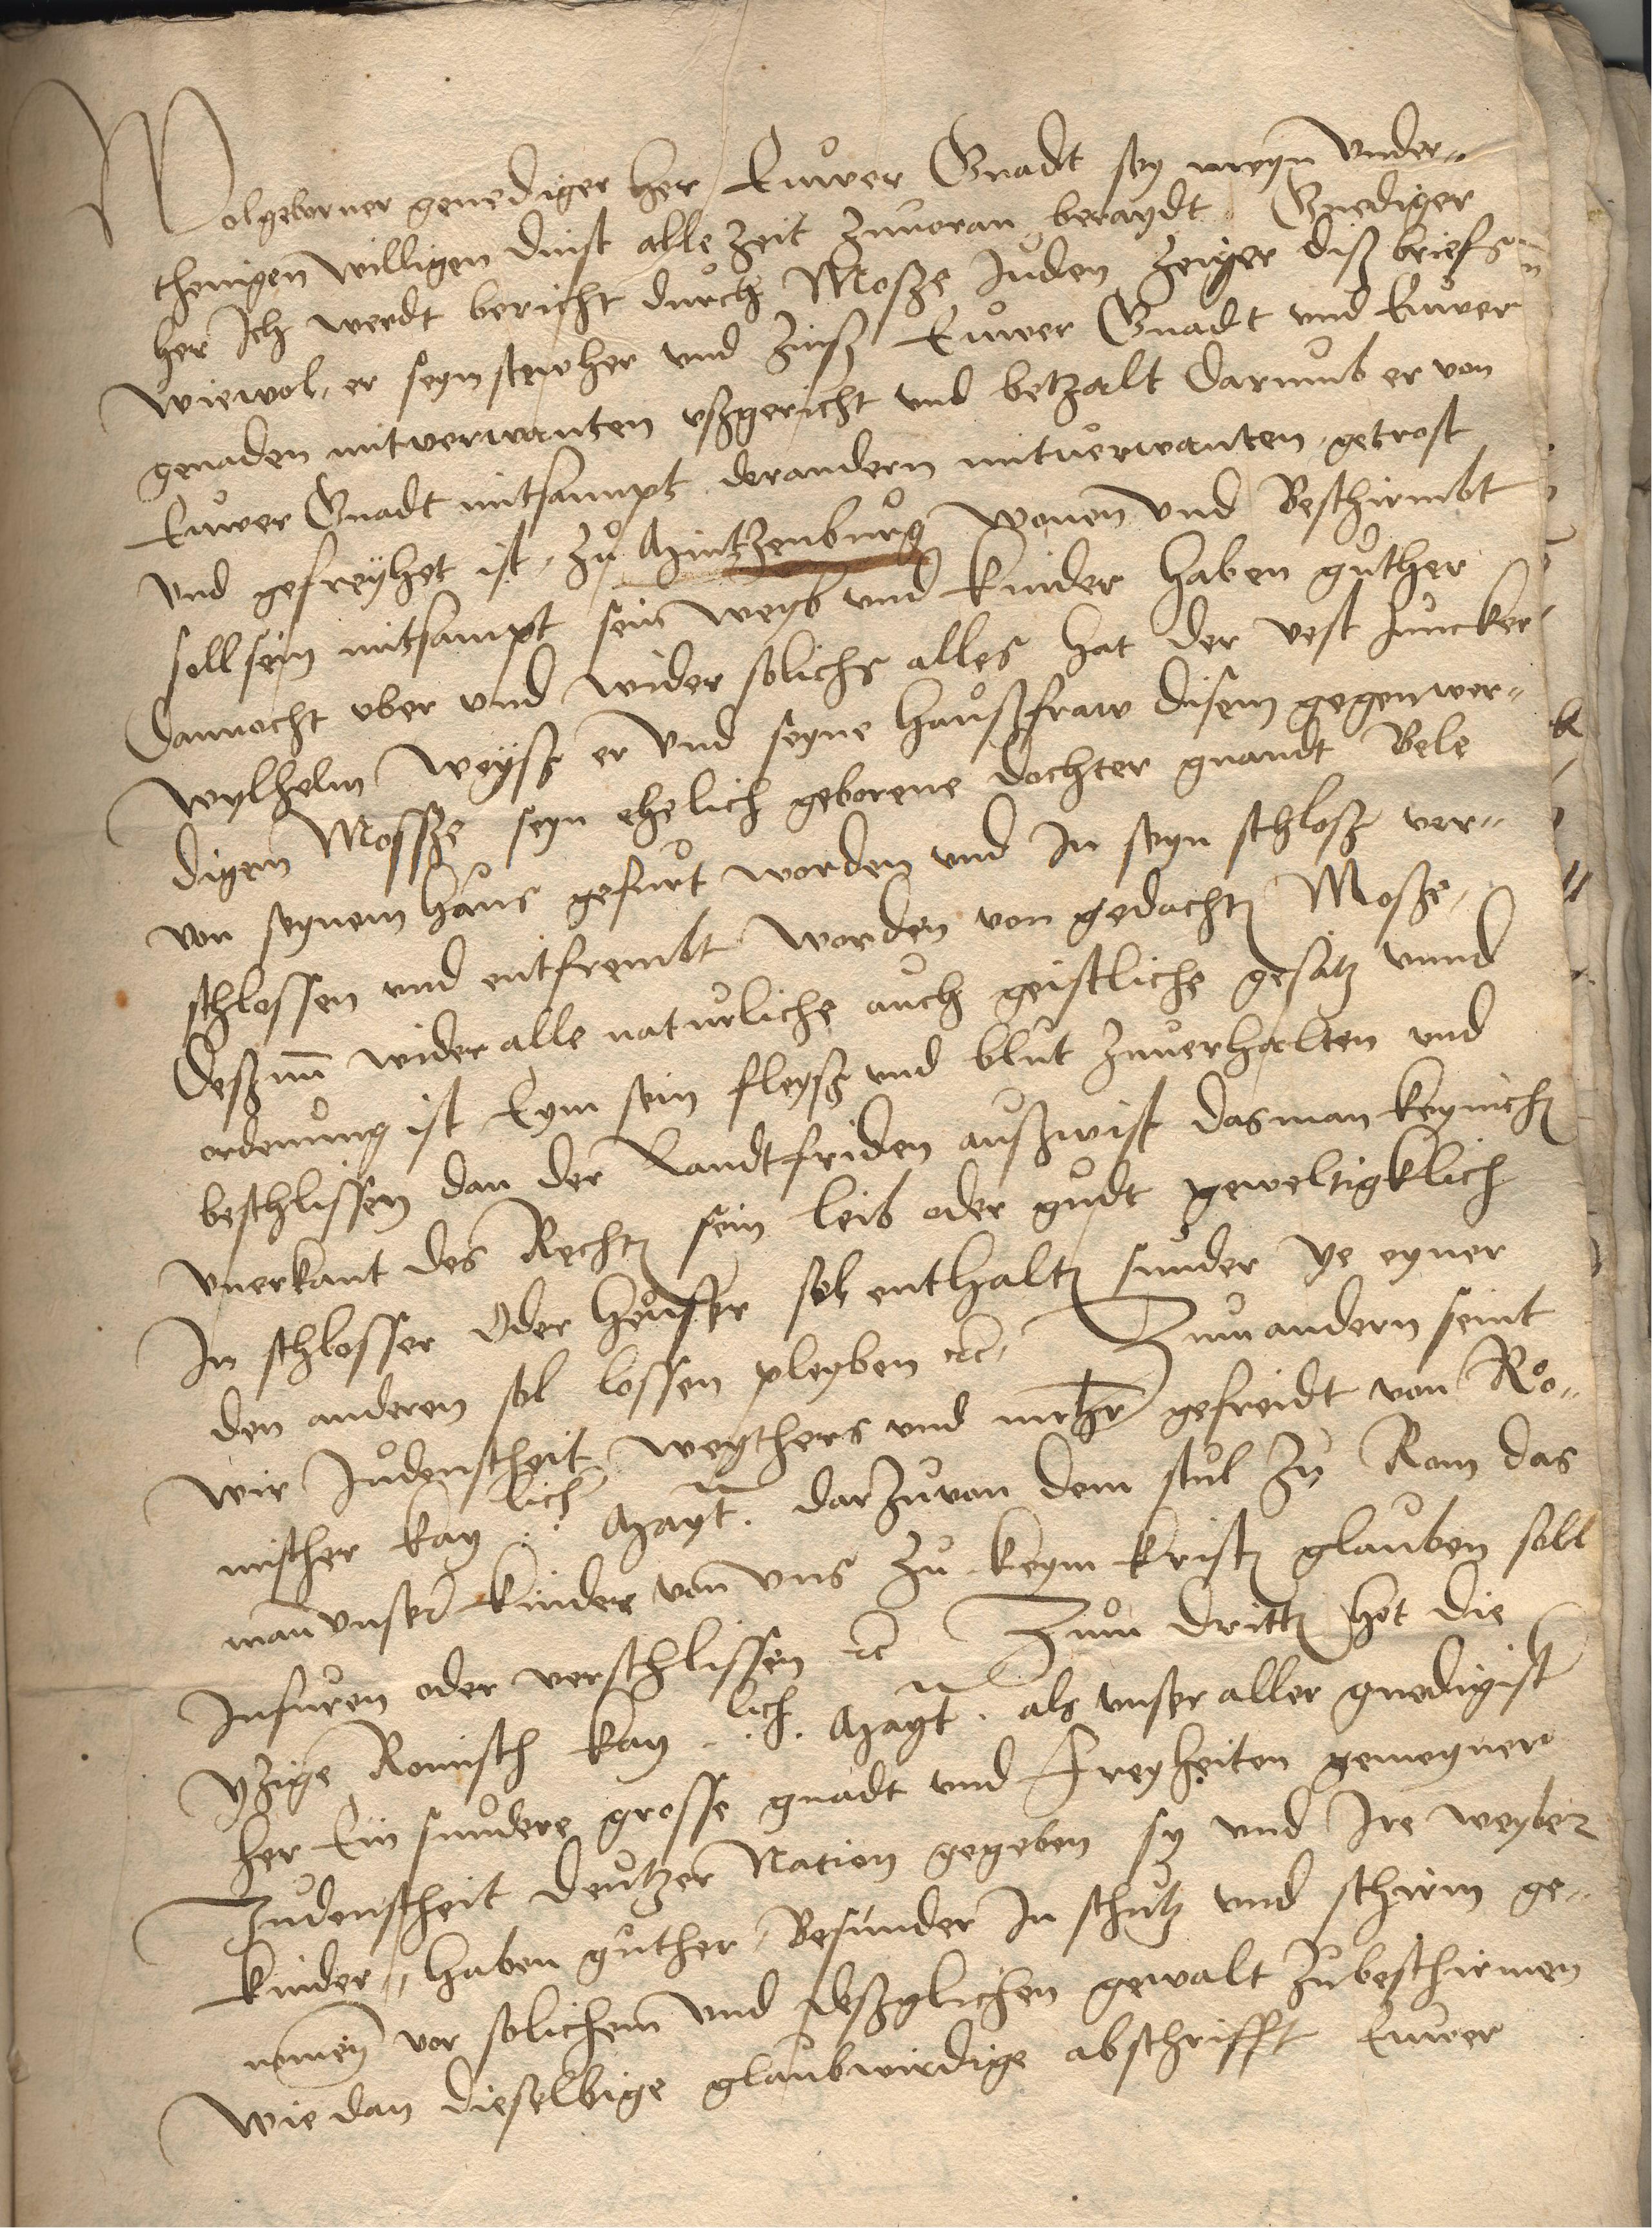 Wolgeborner genediger her Euwer Gnadt sey meyn vnder„
thenigen willigen dinst alle zeit zuuoran beraydt Gnediger
her Ich werdt bericht durch Mosze Juden zeiger disz briefs
wiewol, er seyn steyher vnd zinsz Euwer Gnadt vnd Euwer
genaden mitverwanten vszgericht vnd betzalt darumb er von
Euwer Gnadt mitsampt derandern mituerwanten getrost
vnd gefreyhet ist, zu Mintzenburg wonen vnd Beschirmbt
soll sein mitsampt sein weyb vnd kinder haben guther
Dannocht vber vnd wider solichs alles hat der vest Juncker
Wylhelm Weysz er vnd seyne hauszfraw disem gegenwer„
digem Mossze seyn ehelich geborene dochter gnandt Bele
von seynem haus gefurt worden vnd In seyn schlosz ver„
schlossen vnd entfrembt worden von gedacht Mosze,
Desz nu wider alle naturliche auch geistliche gesatz vnnd
ordenung ist Eym sein fleysz vnd blut zuuerhalten vnd
beschlissen dan der Landtfriden auszwist das man keynich
vnerkant des Recht sein leib oder gudt geweltigklich
In schlosser oder heusser sol enthalt sunder ye eyner
den anderen sol lossen pleyben etc, Zum andern seint
wir Judenscheit weythers vnd mehr gefreidt von Ro„
mischer kay.lich. Mayt. dar zu von dem stul zu Rom das
man vnser kinder von vns zu keym krist glauben soll
Infuren oder verschlissen etc Zum dritt hot die
yzige Romisch kay.lich. Mayt. als vnser aller gnedigist
her Ein sundere grosse gnadt vnd Freyheiten gemeyner
Judenscheit deutzer Nation gegeben sy vnd Ire weyber
kinder„ haben guther, Besunder In schutz vnd schirm ge„
nomen vor solichem vnd deszglichen gewalt zubeschirmen
wie dan dieselbige glaubwirdige abschrifft Euwer